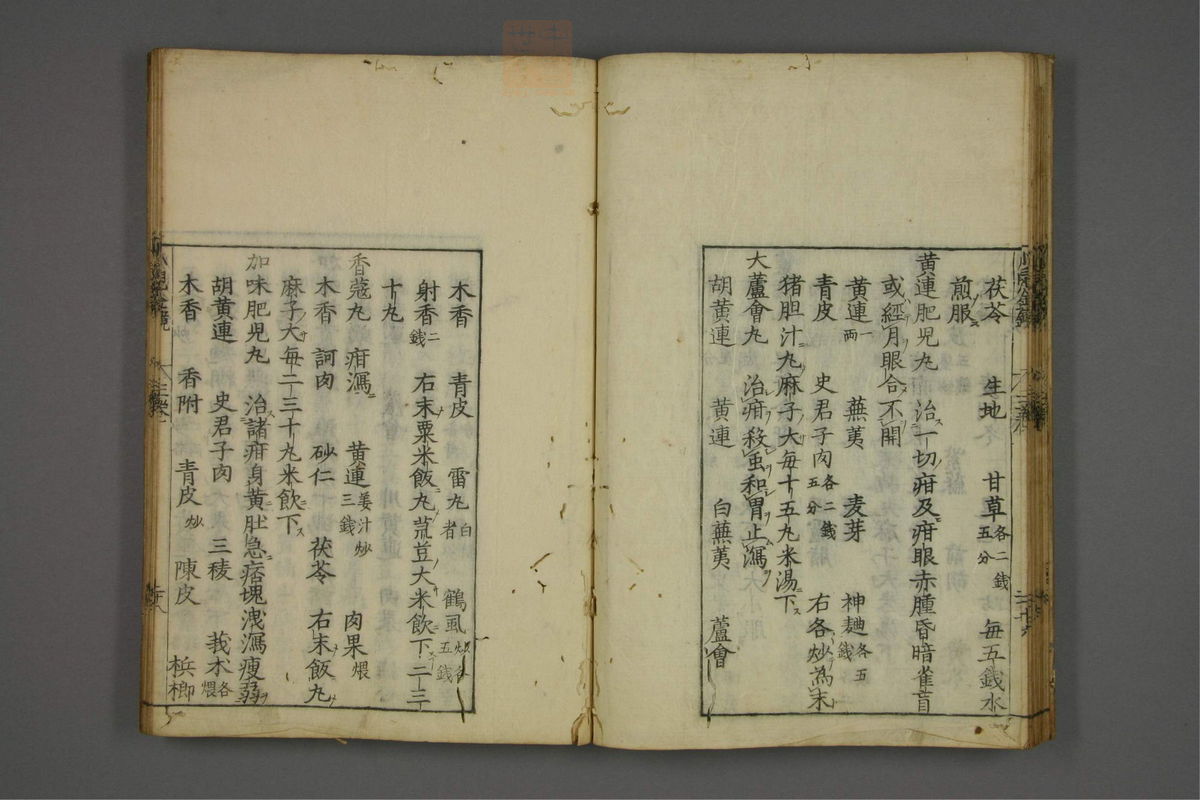 茯苓 生地 甘草各二錢五分 每五錢水
煎服
黄連肥児丸 治一切疳及疳眼赤腫昏暗雀盲
或經月眼合不開
黄連一両 蕪荑 麦芽 神麯各五錢
青皮 史君子肉各二錢五分 右各炒為末
猪胆汁丸麻子大每十五丸米湯下
大蘆會丸 治疳殺虫和胃止瀉
胡黄連 黄連 白蕪荑 蘆會
木香 青皮 雷丸白者 鶴虱炒各五錢
射香二錢 右末粟米飯丸菉荳大米飲下二三
十丸
香蔻丸 疳瀉 黄連姜汁炒三錢 肉果煨
木香 訶肉 砂仁 茯苓 右末飯丸
麻子大每二三十丸米飲下
加味肥児丸 治諸疳身黄肚急痞塊洩瀉瘦弱
胡黄連 史君子肉 三稜 莪朮各煨
木香 香附 青皮炒 陳皮 梹榔